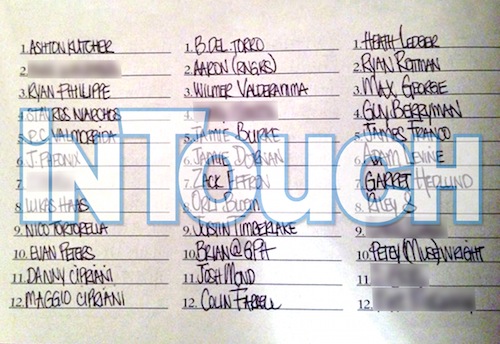 1. ASHTON KUTCHER
2.
3. RYAN PHILLIPE
4. STAVROS NIARCHOS
5. P.C. VALMORBIDA
6. J. PHEONIX
7.
8. LUKAS HAAS
9. NICO TORTORELLA
10. EVAN PETERS
11. DANNY CIPRIANI
12. MAGGIO CIPRIANI
1. B. DEL TORRO
2. AARON
3. WILMER VALDERAMA
4.
5. JAMIE BURKE
6. JAMIE DORNAN
7. ZACK EFFRON
8. ORLY BLOOM
9. JUSTIN TIMBERLAKE
10. BRIAN @ GPH
11. JOSH MOND
12. COLIN FARRELL
1. HEATH LEDGER
2. RYAN ROTTMAN
3. MAX GEORGE
4. GUY BERRYMAN
5. JAMES FRANCO
6. ADAM LEVINE
7. GARRET HEDLUND
8. RILEY S
9.
10. PETEY (MUSE) WRIGHT
11.
12.
INTouch